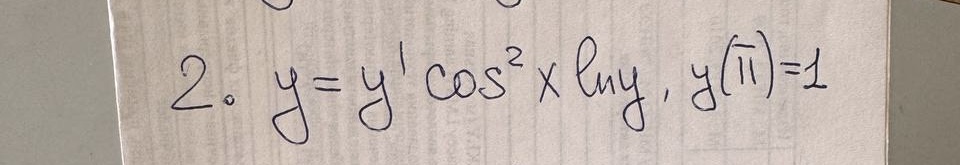 2. y = y' cos² x ln y, y(π) = 1